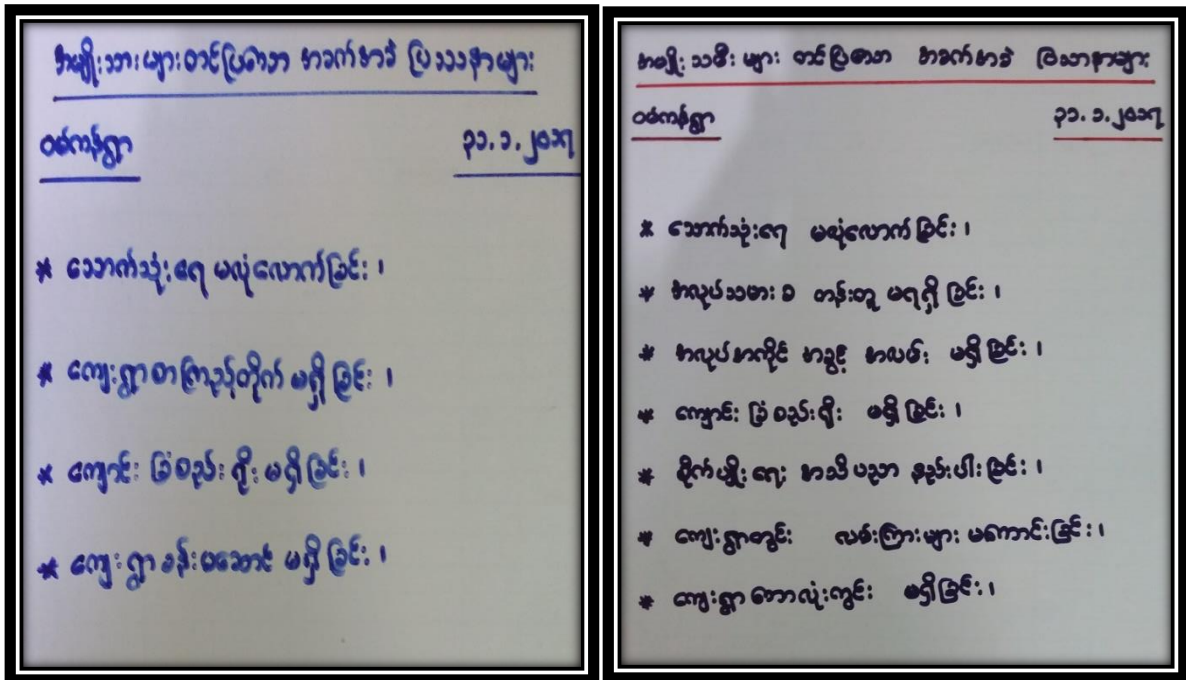 အမျိုးသားများတင်ပြသော အခက်အခဲ ပြဿနာများ
ဝမ်ကန်ရွာ ၃၁.၁.၂၀၁၇
* သောက်သုံးရေ မလုံလောက်ခြင်း ၊
* ကျေးရွာစာကြည့်တိုက် မရှိခြင်း ၊
* ကျောင်း ခြံစည်းရိုး မရှိခြင်း ၊
* ကျေးရွာခန်းမဆောင် မရှိခြင်း ၊
အမျိုးသမီးများ တင်ပြသော အခက်အခဲ ပြဿနာများ
ဝမ်ကန်ရွာ ၃၁.၁.၂၀၁၇
* သောက်သုံးရေ မလုံလောက်ခြင်း ၊
* အလုပ်သမားခ တန်းတူ မရရှိခြင်း ၊
* အလုပ်အကိုင် အခွင့် အလမ်း မရှိခြင်း ၊
* ကျောင်း ခြံစည်းရိုး မရှိခြင်း ၊
* စိုက်ပျိုးရေး အသိပညာ နည်းပါးခြင်း ၊
* ကျေးရွာတွင်း လမ်းကြားများ မကောင်းခြင်း ၊
* ကျေးရွာ ဘောလုံးကွင်း မရှိခြင်း ၊